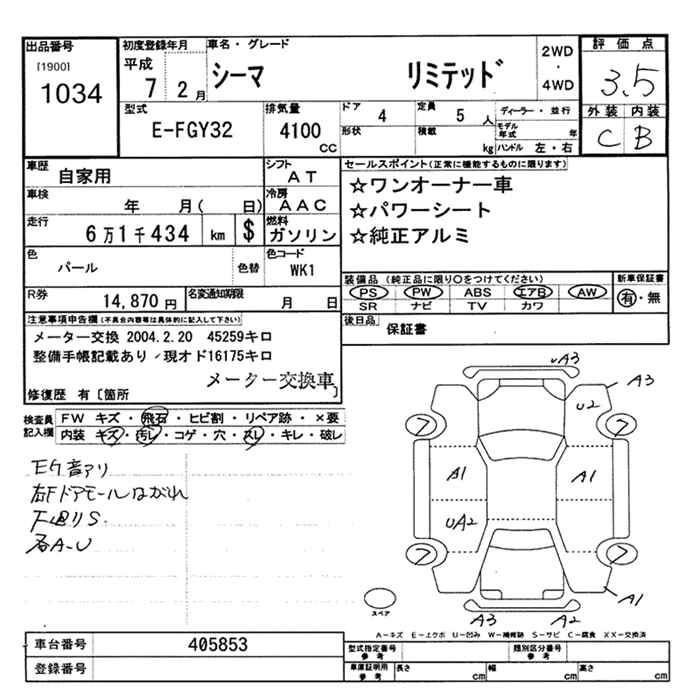 出品番号 初度登録年月 車名・グレード 2WD ・ 4WD 評価点
[1900] 1034 平成 7 2月 シーマ リミテッド 3.5
型式 排気量 ドア 4 定員 5人 ディーラー・並行 外装 内装
E-FGY32 4100 CC 形状 積載 kg モデル年式 年 ハンドル 左・右 C B
車歴 自家用 シフト AT セールスポイント(正常に機能するものに限ります)
車検 年 月( 日) 冷房 AAC ☆ワンオーナー車
☆パワーシート
走行 6万1千434 km $ 燃料 ガソリン ☆純正アルミ
色 パール 色替 色コード WK1
装備品(純正品に限り○をつけてください) 新車保証書
R券 14,870円 名変通知期限 月 日 PS PW ABS エアB AW 有・無
SR ナビ TV カワ
注意事項申告欄(不具合内容等は具体的に記入して下さい) 後日品 保証書
メーター交換 2004.2.20 45259キロ
整備手帳記載あり/現オド16175キロ
メーター交換車
修復歴 有[箇所 ]
検査員記入欄 FW キズ・飛石・ヒビ割・リペア跡・×要
内装 キズ・汚レ・コゲ・穴・スレ・キレ・破レ
EG音アリ
右Fドアモールはがれ
下廻りS.
各A-U
A3 A3
U2
ア ア
A1 A1
UA2
ア ア
A1
スペア A3 A2
A-キズ E-エクボ U-凹み W-補修跡 S-サビ C-腐食 XX-交換済
車台番号 405853 型式指定番号 参考 類別区分番号 参考
登録番号 車庫証明用 参考 長さ cm 幅 cm 高さ cm